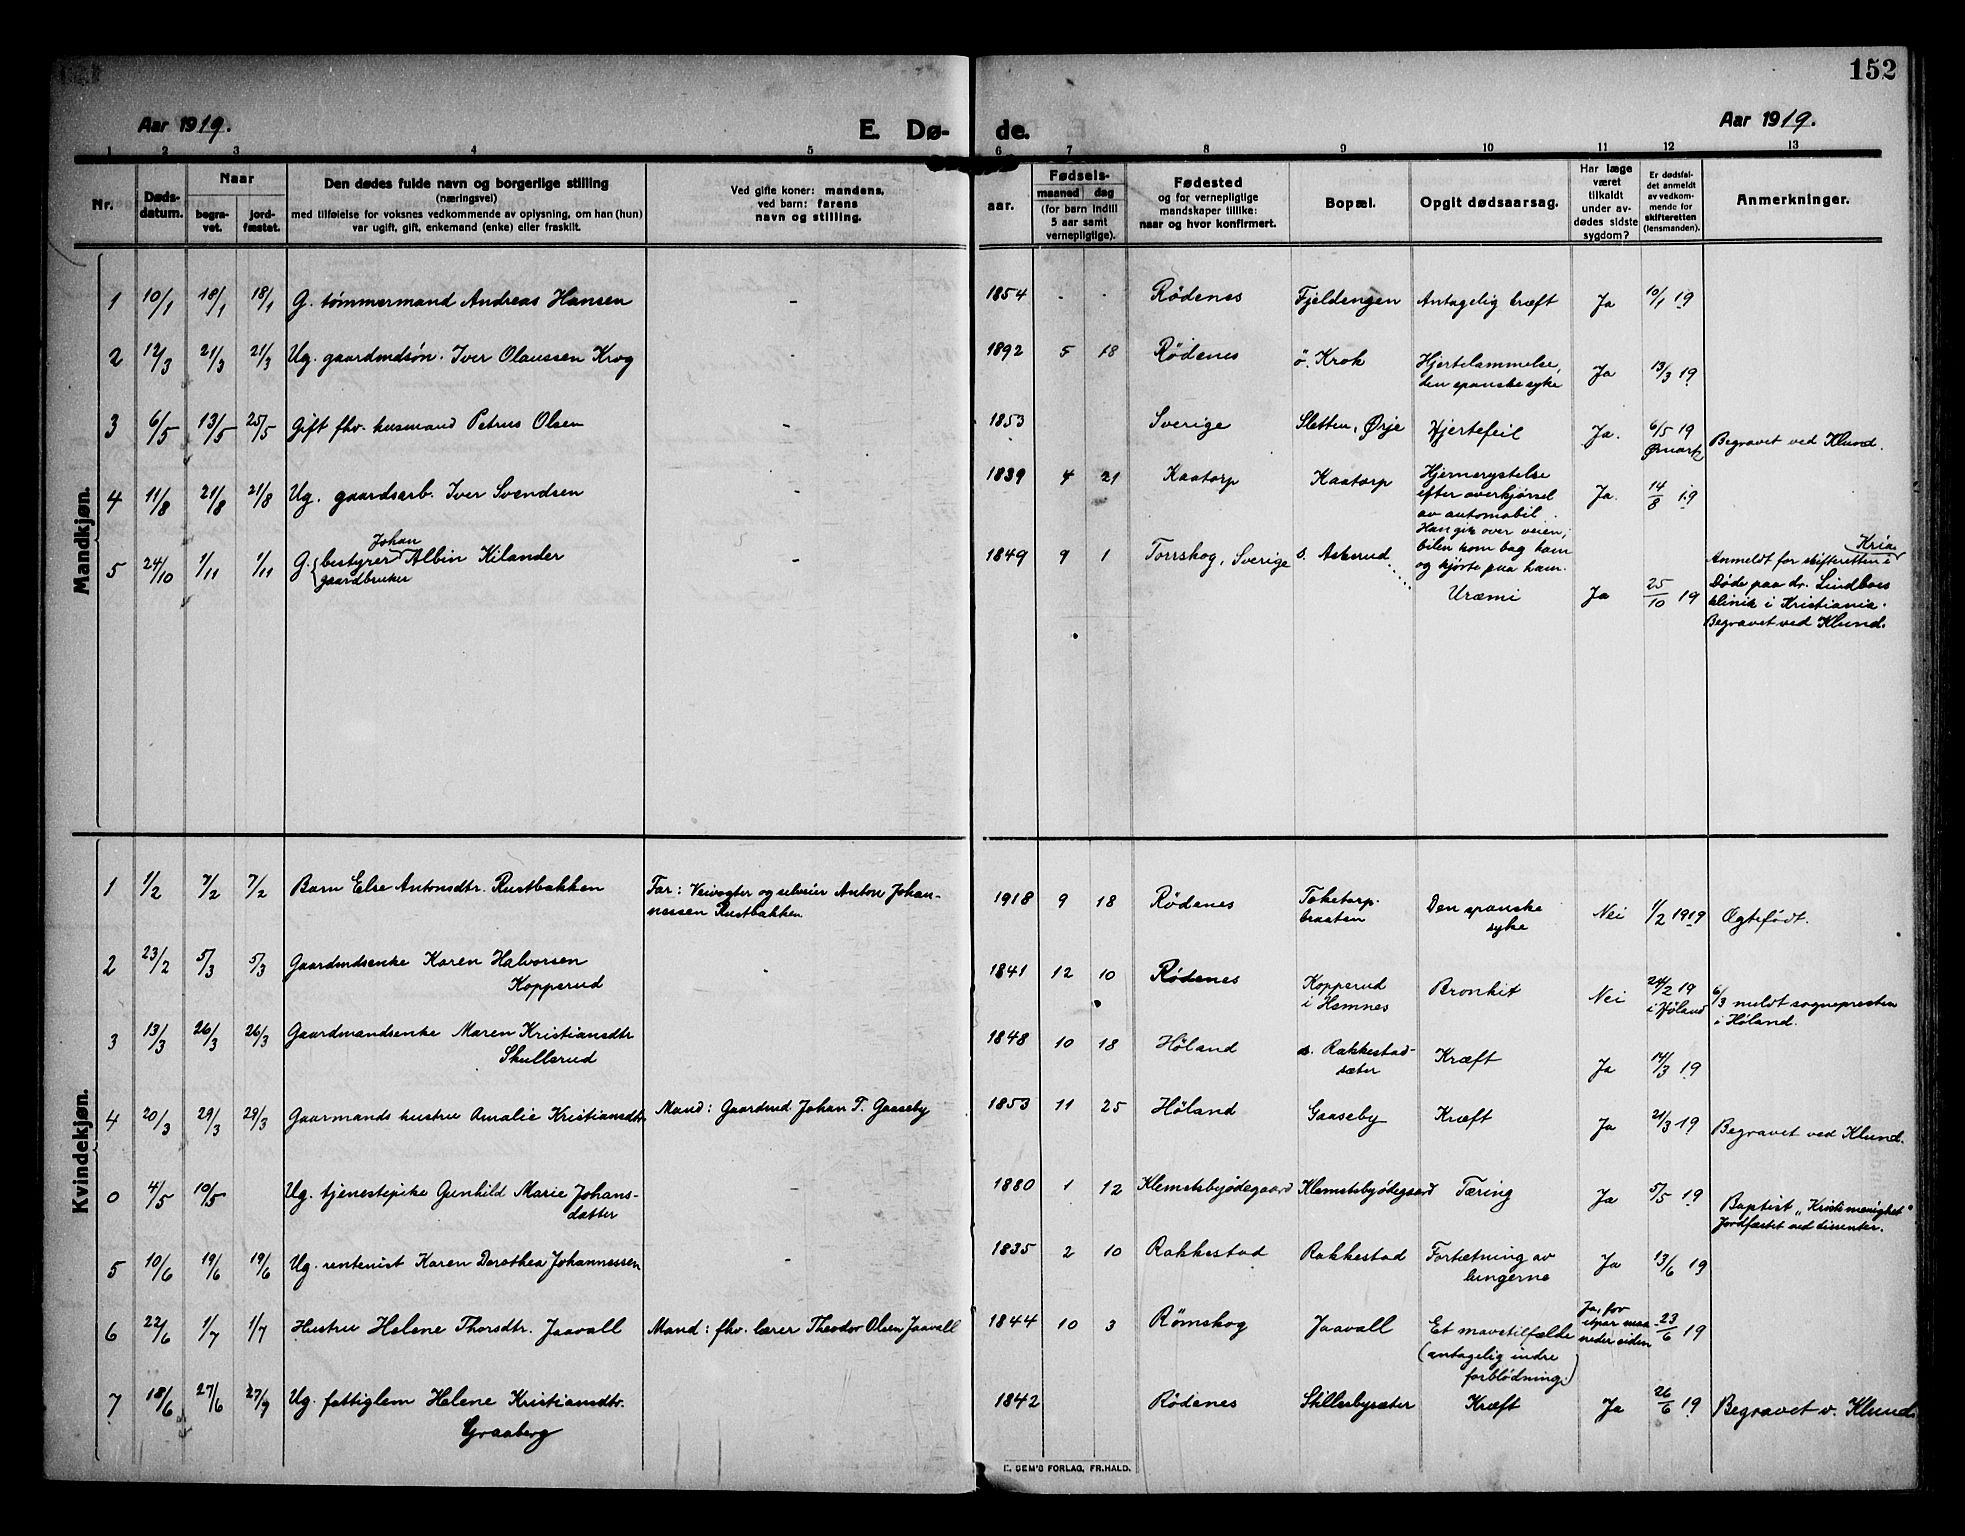 152
Aar 1919.
E. Dø-
de.
Aar 1919.
1 2 3 4 5 6 7 8 9 10 11 12 13
Nr.
Døds-
datum.
Naar
begra-
vet.
jord-
fæstet.
Den dødes fulde navn og borgerlige stilling
(næringsvei)
med tilføielse for voksnes vedkommende av oplysning, om han (hun)
var ugift, gift, enkemand (enke) eller fraskilt.
Ved gifte koner: mandens,
ved barn: farens
navn og stilling.
Fødsels-
aar.
maaned dag
(for barn indtil
5 aar samt
vernepligtige).
Fødested
og for vernepligtige
mandskaper tillike:
naar og hvor konfirmert.
Bopæl.
Opgit dødsaarsag.
Har læge
været
tilkaldt
under av-
dødes sidste
sygdom?
Er dødsfal-
det anmeldt
av vedkom-
mende for
skifteretten
(lensmanden).
Anmerkninger.
Mandkjøn.
1 10/1 18/1 18/1 G. tømmermand Andreas Hansen - 1854 - - Rödenes Fjeldengen Antagelig kræft Ja 10/1 19
2 12/3 21/3 21/3 Ug. gaardmdsøn. Iver Olaussen Krog - 1892 5 18 Rödenes ö. Krok Hjertelammelse,
den spanske syke Ja 13/3 19
3 6/5 13/5 25/5 Gift fhv. husmand Petrus Olsen - 1853 Sverige Sletten, Ørje Hjertefeil Ja. 6/5 19
Ømark Begravet ved Klund.
4 11/8 21/8 21/8 Ug. gaardsarb. Iver Svendsen - 1839 4 21 Kaatorp Kaatorp Hjernerystelse
efter overkjørsel
av automobil.
Han gik over veien;
bilen kom bag ham
og kjørte paa ham. Ja. 14/8 19
5 24/10 1/11 1/11 G. bestyrer Johan Albin Kilander
gaardbruker
- 1849 9 1 Torrskog, Sverige s. Askerud Uræmi Ja 25/10 19
Anmeldt for skifteretten i Kria
Døde paa dr. Lindboes
klinik i Kristiania.
Begravet ved Klund.
Kvindekjøn.
1 1/2 7/2 7/2 Barn Else Antonsdtr. Rustbakken Far: Veivogter og selveier Anton Johan-
nessen Rustbakken 1918 9 18 Rödenes Toketorp-
braaten Den spanske
syke Nei 1/2 1919 Øgtefödt.
2 23/2 5/3 5/3 Gaardmdsenke Karen Halvorsen
Kopperud - 1841 12 10 Rödenes Kopperud
i Hemnes Bronkit Nei 24/2 19
i Höland 6/3 meldt sognepresten
i Höland.
3 13/3 26/3 26/3 Gaardmandsenke Maren Kristiansdtr
Skullerud 1848 10 18 Höland s. Rakkestad-
sæter Kræft Ja 14/3 19
4 20/3 29/3 29/3 Gaarmands hustru Amalie Kristiansdtr Mand: Gaardmd Johan T. Gaaseby 1853 11 25 Höland Gaaseby Kræft Ja 21/3 19 Begravet ved Klund.
0 4/5 10/5 Ug. tjenestepike Gunhild Marie Johans-
datter - 1880 1 12 Klemetsbyödegaard Klemetsbyödegaard Tæring Ja 5/5 19 Baptist „Kristi menighet"
Jordfæstet ved dissenter.
5 10/6 19/6 19/6 Ug. rentenist Karen Dorothea Johannessen - 1835 2 10 Rakkestad Rakkestad Fortætning av
lungerne Ja 13/6 19
6 22/6 1/7 1/7 Hustru Helene Thorsdtr. Jaavall Mand: fhv. lærer Theodor Olsen Jaavall 1844 10 3 Römskog Jaavall Et mavetilfælde
(antagelig indre
forblödning.) Ja, for
et par maa-
neder siden 23/6 19
7 18/6 27/6 27/9 Ug. fattiglem Helene Kristiansdtr.
Graaberg 1842 Rödenes Stillesbysæter Kræft Ja 26/6 19 Begravet v. Klund.
E. SEM'S FORLAG, FR.HALD.